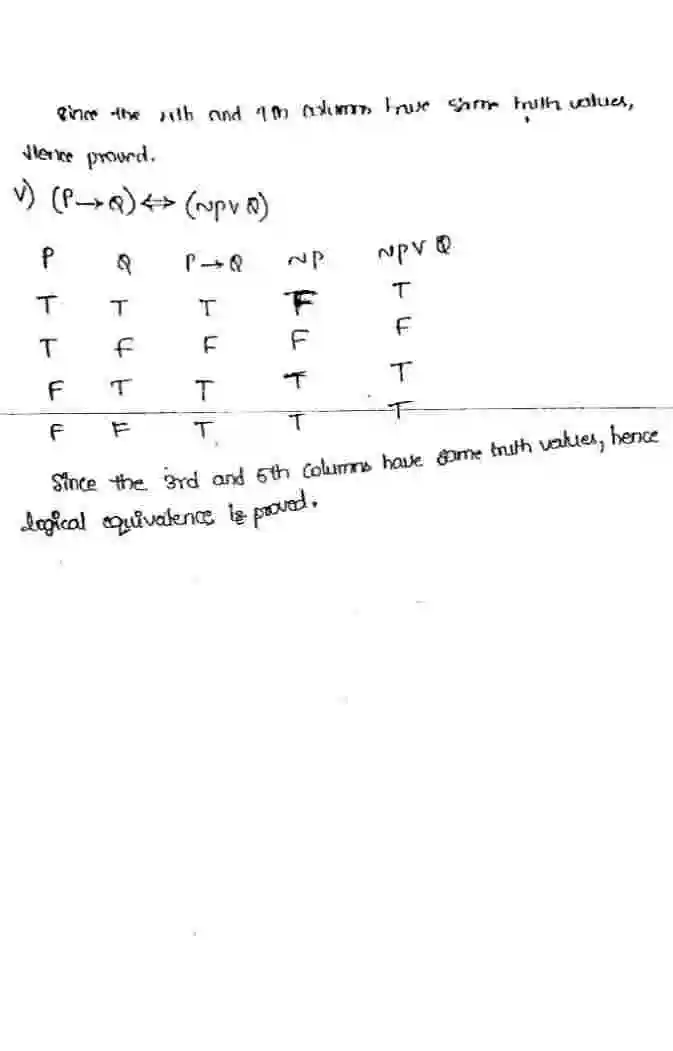 Since the 4th and 9th columns have same truth values,
Hence proved.
v) (P→Q)⇔(~P∨Q)
P Q P→Q ~P ~P∨Q
T T T F T
T F F F F
F T T T T
F F T T T
Since the 3rd and 5th columns have same truth values, hence
logical equivalence is proved.